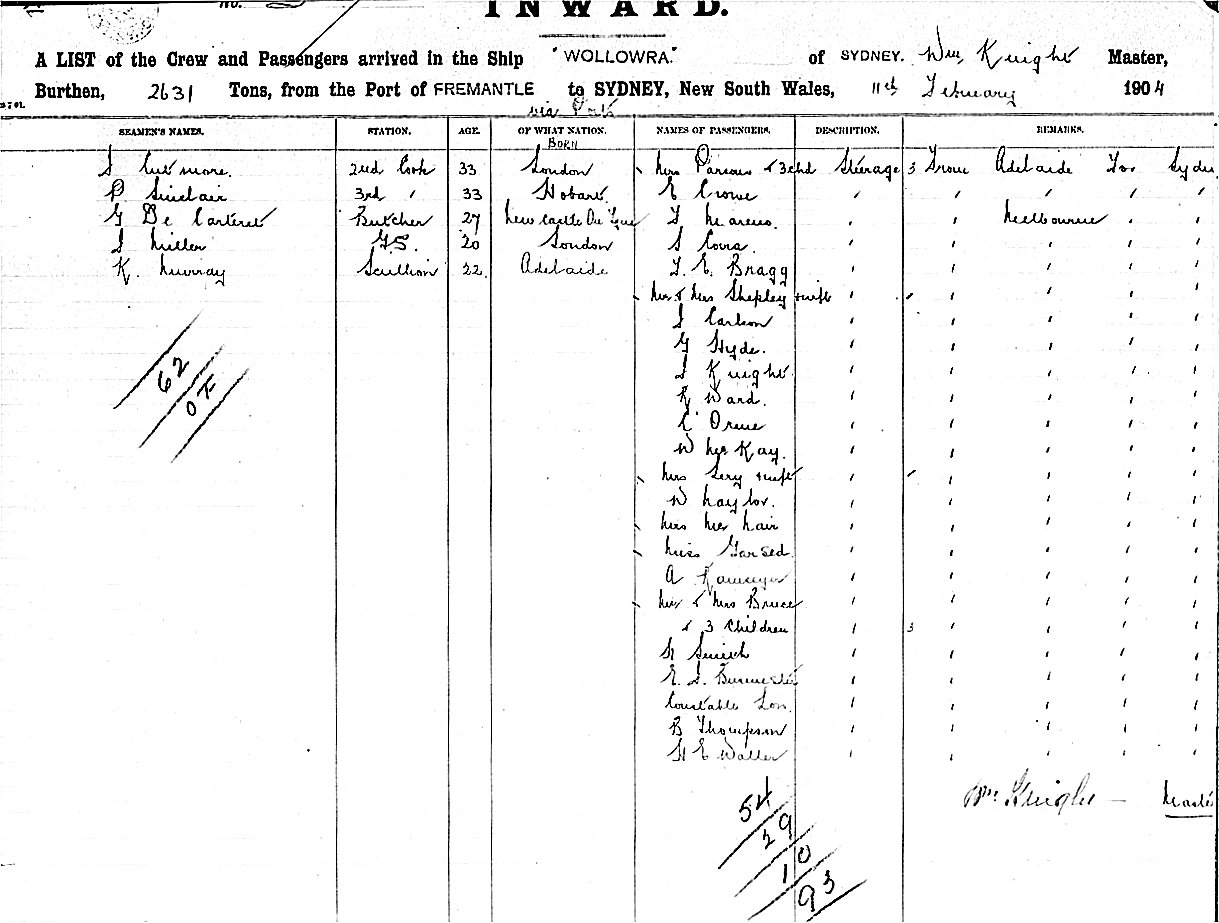 INWARD.
A LIST of the Crew and Passengers arrived in the Ship "WOLLOWRA" of SYDNEY. Wm Knight Master,
Burthen, 2631 Tons, from the Port of FREMANTLE to SYDNEY, New South Wales, 11th February 1904
via Ports
SEAMEN'S NAMES. STATION. AGE. OF WHAT NATION. NAMES OF PASSENGERS. DESCRIPTION. REMARKS.
BORN
2nd Cook 33 London Mrs Parsons & 3 chd Steerage 3 From Adelaide For Sydn
P. Sinclair 3rd " 33 Hobart E Crowe " " " " "
G De Carteret Butcher 27 " " Melbourne " "
J Miller G.S. 20 London " " " " "
K. Murray Scullion 22 Adelaide E. Bragg " " " " "
Mr & Mrs Shepley " " " " "
J Carlson " " " " "
G Hyde. " " " " "
Knight " " " " "
R Ward. " " " " "
C Orme " " " " "
W McKay. " " " " "
62
OK
Mrs " " " " "
W Naylor. " " " " "
Mrs McNair " " " " "
Miss Garsed " " " " "
A " " " " "
Mr & Mrs Bruce " " " " "
& 3 Children " 3 " " " "
H Smith " " " " "
E. " " " " "
Constable Lon. " " " " "
B Thompson " " " " "
H E Waller " " " " "
Wm Knight — Master
54
29
10
93